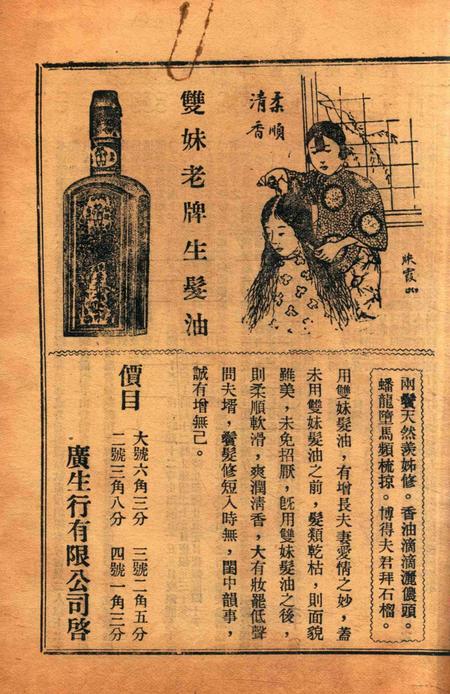 柔順
清香
雙妹老牌生髮油
映霞
兩鬢天然羨姊修。香油滴滴灑儂頭。
蟠龍墮馬頻梳掠。博得夫君拜石榴。
用雙妹髮油，有增長夫妻愛情之妙，蓋
未用雙妹髮油之前，髮類乾枯，則面貌
雖美，未免招厭，旣用雙妹髮油之後，
則柔順軟滑，爽潤清香，大有妝罷低聲
問夫壻，鬢髮修短入時無，閨中韻事，
誠有增無已。
價目
大號六角三分　三號二角五分
二號三角八分　四號一角三分
廣生行有限公司啓